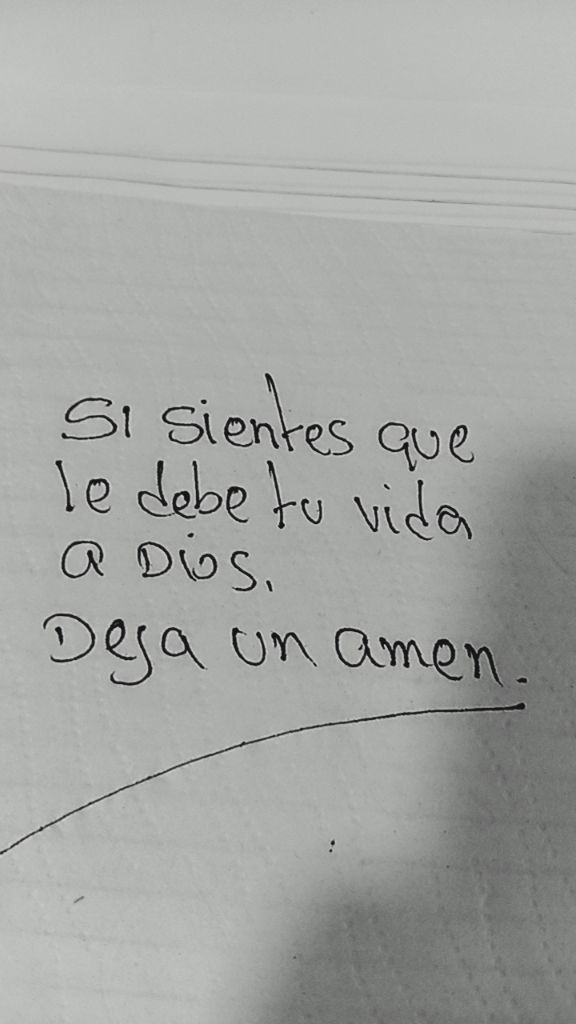 SI sientes que
le debe tu vida
a Dios.
Deja un amen.